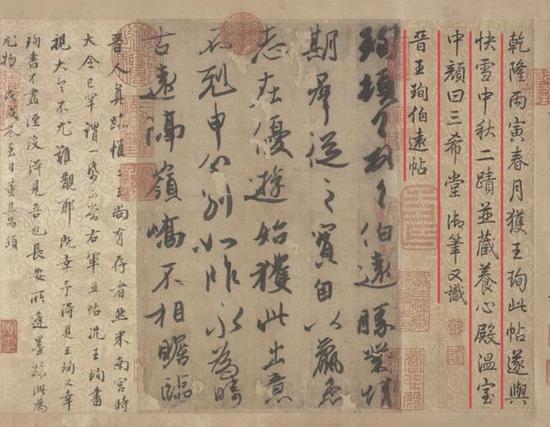 乾隆丙寅春月獲王珣此帖遂與
快雪中秋二蹟並藏養心殿溫室
中顏曰三希堂御筆又識
晉王珣伯遠帖
珣頓首頓首伯遠勝業情
期羣從之寶自以羸患
志在優遊始獲此出意
不剋申分別如昨永為疇
古遠隔嶺嶠不相瞻臨
晉人真跡惟二王尚有存者然米南宮時
大令已罕謂一紙可當右軍五帖況王珣書
視大令不尤難覯耶既幸予得見王珣又幸
珣書不盡湮沒得見吾也長安所逢墨跡此為
尤物 戊戌冬至日董其昌題